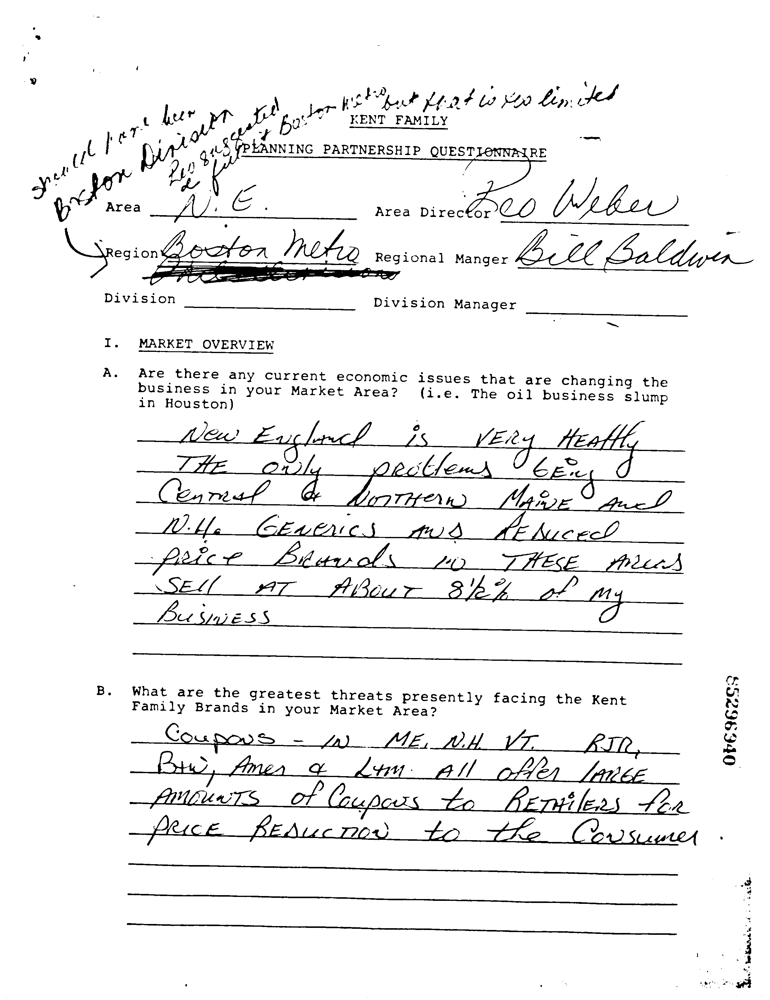 should have been
Boston Division
Leo suggested Boston Metro but that is too limited
KENT FAMILY
PLANNING PARTNERSHIP QUESTIONNAIRE
Area N.E. Area Director Leo Weber
Region Boston Metro Regional Manger Bill Baldwin
Division Division Manager
I. MARKET OVERVIEW
A. Are there any current economic issues that are changing the
business in your Market Area? (i.e. The oil business slump
in Houston)
New England is VERy HEAlthy
THE only problems bEing
Central & NortHern MAiNE And
N.H. GENERICS AND REDuced
price BRANds IN THESE AREAS
SEll AT ABOUT 8 1/2% of my
BUSINESS
B. What are the greatest threats presently facing the Kent
Family Brands in your Market Area?
Coupons - IN ME, N.H. VT. RJR,
B&W, Amer & L&M. All offer lARGE
AMOUNTS of Coupons to RETAilERS for
PRICE REDUCTION to the Consumer
85296940